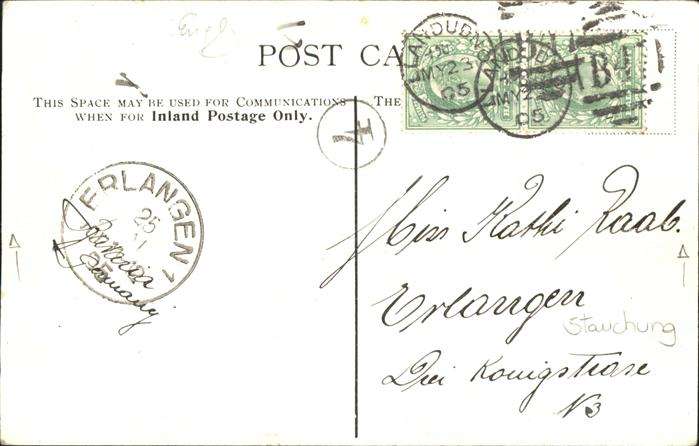 Engl
POST CA
THIS SPACE MAY BE USED FOR COMMUNICATIONS
WHEN FOR Inland Postage Only.
THE
LANDUDN
MY 23
05
LANDUDN
MY 2
05
B
4
ERLANGEN 1
25
Bavaria
Germany
Miss Kathi Raab.
Erlangen
Stauchung
Drei Konigstrase
N 3